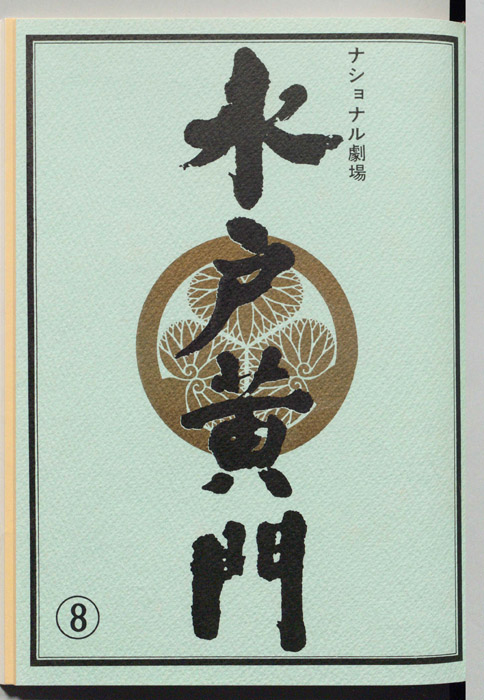 ナショナル劇場
水戸黄門
⑧